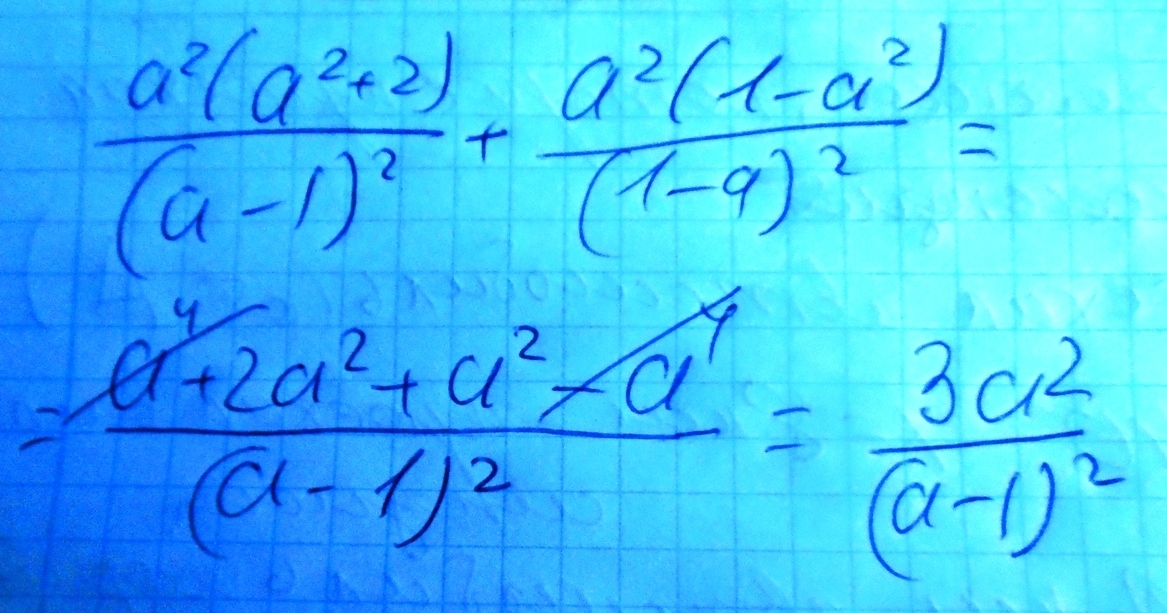 a²(a²+2)/(a-1)² + a²(1-a²)/(1-a)² =
= (a⁴+2a²+a²-a⁴)/(a-1)² = 3a²/(a-1)²